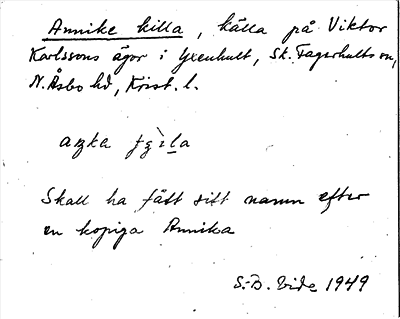 Annike killa, källa på Viktor
Karlssons ägor i Yxenhult, Sk. Fagerhults sn,
N. Åsbo hd, Krist. l.
Skall ha fått sitt namn efter
en kopiga Annika
S.-B. Vide 1949